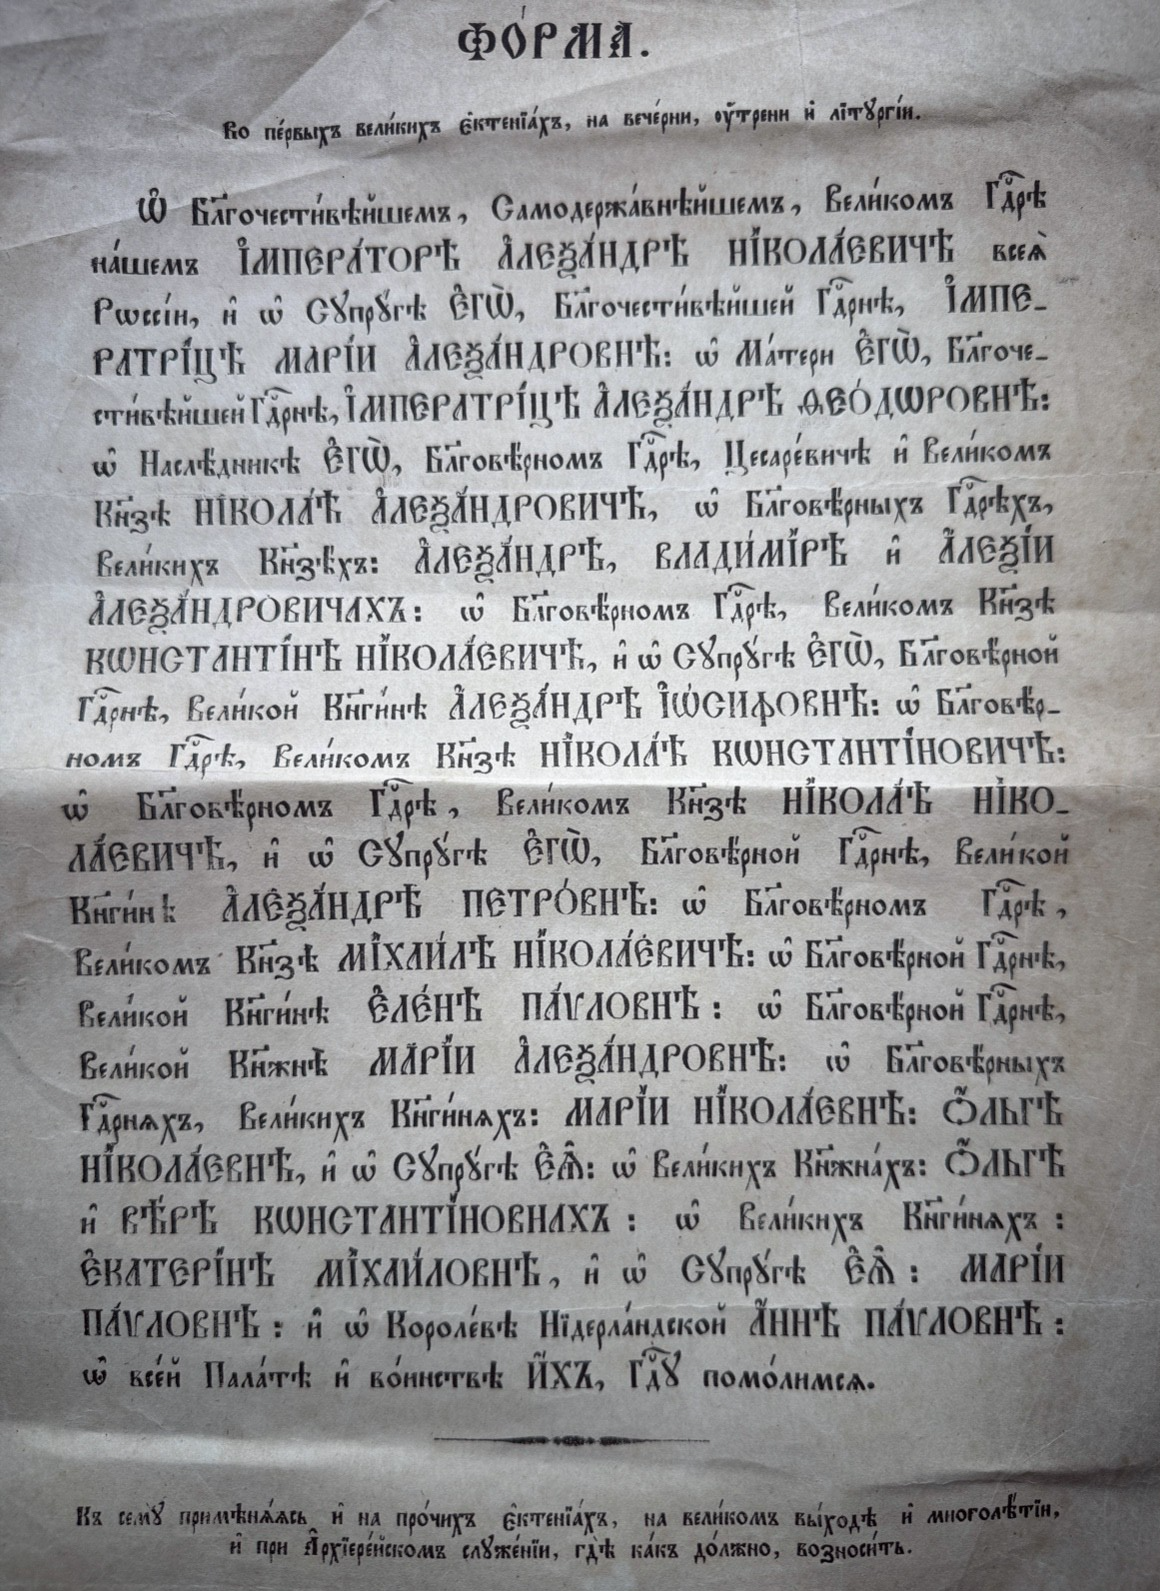 ФО́РМА.
Во пе́рвыхъ вели́кихъ є҆ктенїа́хъ, на вече́рни, ᲂу҆́трени и҆ лїтꙋргі́и.
Ѽ Бл҃гочести́вѣйшемъ, Самодержа́внѣйшемъ, Вели́комъ Гдⷭ҇рѣ
на́шемъ І҆МПЕРА́ТОРѢ А҆ЛЕѮА́НДРѢ НІКОЛА́ЕВИЧѢ всеѧ̀
Рѡссі́и, и҆ ѡ҆ Сꙋпрꙋ́гѣ Є҆ГѠ̀, Бл҃гочести́вѣйшей Гдⷭ҇рнѣ, І҆МПЕ-
РАТРІ́ЦѢ МАРІ́И А҆ЛЕѮА́НДРОВНѢ: ѡ҆ Ма́тери Є҆ГѠ̀, Бл҃гоче-
сти́вѣйшей Гдⷭ҇рнѣ, І҆МПЕРАТРІ́ЦѢ А҆ЛЕѮА́НДРѢ ѲЕО́ДѠРОВНѢ:
ѡ҆ Наслѣ́дникѣ Є҆ГѠ̀, Бл҃говѣ́рномъ Гдⷭ҇рѣ, Цесаре́вичѣ и҆ Вели́комъ
Кн҃зѣ НІКОЛА́Ѣ А҆ЛЕѮА́НДРОВИЧѢ, ѡ҆ Бл҃говѣ́рныхъ Гдⷭ҇рѣхъ,
Вели́кихъ Кн҃зѣ́хъ: А҆ЛЕѮА́НДРѢ, ВЛАДИ́МІРѢ и҆ А҆ЛЕѮІ́И
А҆ЛЕѮА́НДРОВИЧАХЪ: ѡ҆ Бл҃говѣ́рномъ Гдⷭ҇рѣ, Вели́комъ Кн҃зѣ
КѠНСТАНТІ́НѢ НІКОЛА́ЕВИЧѢ, и҆ ѡ҆ Сꙋпрꙋ́гѣ Є҆ГѠ̀, Бл҃говѣ́рной
Гдⷭ҇рнѣ, Вели́кой Кн҃ги́нѣ А҆ЛЕѮА́НДРѢ І҆Ѡ́СИФОВНѢ: ѡ҆ Бл҃говѣ́р-
номъ Гдⷭ҇рѣ, Вели́комъ Кн҃зѣ НІКОЛА́Ѣ КѠНСТАНТІ́НОВИЧѢ:
ѡ҆ Бл҃говѣ́рномъ Гдⷭ҇рѣ, Вели́комъ Кн҃зѣ НІКОЛА́Ѣ НІКО-
ЛА́ЕВИЧѢ, и҆ ѡ҆ Сꙋпрꙋ́гѣ Є҆ГѠ̀, Бл҃говѣ́рной Гдⷭ҇рнѣ, Вели́кой
Кн҃ги́нѣ А҆ЛЕѮА́НДРѢ ПЕТРО́ВНѢ: ѡ҆ Бл҃говѣ́рномъ Гдⷭ҇рѣ,
Вели́комъ Кн҃зѣ МІХАИ́ЛѢ НІКОЛА́ЕВИЧѢ: ѡ҆ Бл҃говѣ́рной Гдⷭ҇рнѣ,
Вели́кой Кн҃ги́нѣ Є҆ЛЕ́НѢ ПА́ѴЛОВНѢ: ѡ҆ Бл҃говѣ́рной Гдⷭ҇рнѣ,
Вели́кой Кн҃жнѣ̀ МАРІ́И А҆ЛЕѮА́НДРОВНѢ: ѡ҆ Бл҃говѣ́рныхъ
Гдⷭ҇рнѧхъ, Вели́кихъ Кн҃ги́нѧхъ: МАРІ́И НІКОЛА́ЕВНѢ: Ѻ҆́ЛЬГѢ
НІКОЛА́ЕВНѢ, и҆ ѡ҆ Сꙋпрꙋ́гѣ Є҆Ѧ̀: ѡ҆ Вели́кихъ Кн҃жна́хъ: Ѻ҆́ЛЬГѢ
и҆ ВѢ́РѢ КѠНСТАНТІ́НОВНАХЪ: ѡ҆ Вели́кихъ Кн҃ги́нѧхъ:
Є҆КАТЕРІ́НѢ МІХАИ́ЛОВНѢ, и҆ ѡ҆ Сꙋпрꙋ́гѣ Є҆Ѧ̀: МАРІ́И
ПА́ѴЛОВНѢ: и҆ ѡ҆ Короле́вѣ Нїдерла́ндской А҆́ННѢ ПА́ѴЛОВНѢ:
ѡ҆ все́й Пала́тѣ и҆ во́инствѣ И҆́ХЪ, Гдⷭ҇ꙋ помо́лимсѧ.
Къ семꙋ̀ примѣнѧ́ѧсь и҆ на про́чихъ є҆ктенїа́хъ, на вели́комъ вы́ходѣ и҆ многолѣ́тїи,
и҆ при А҆рхїере́йскомъ слꙋже́нїи, гдѣ̀ ка́къ до́лжно, возноси́ть.